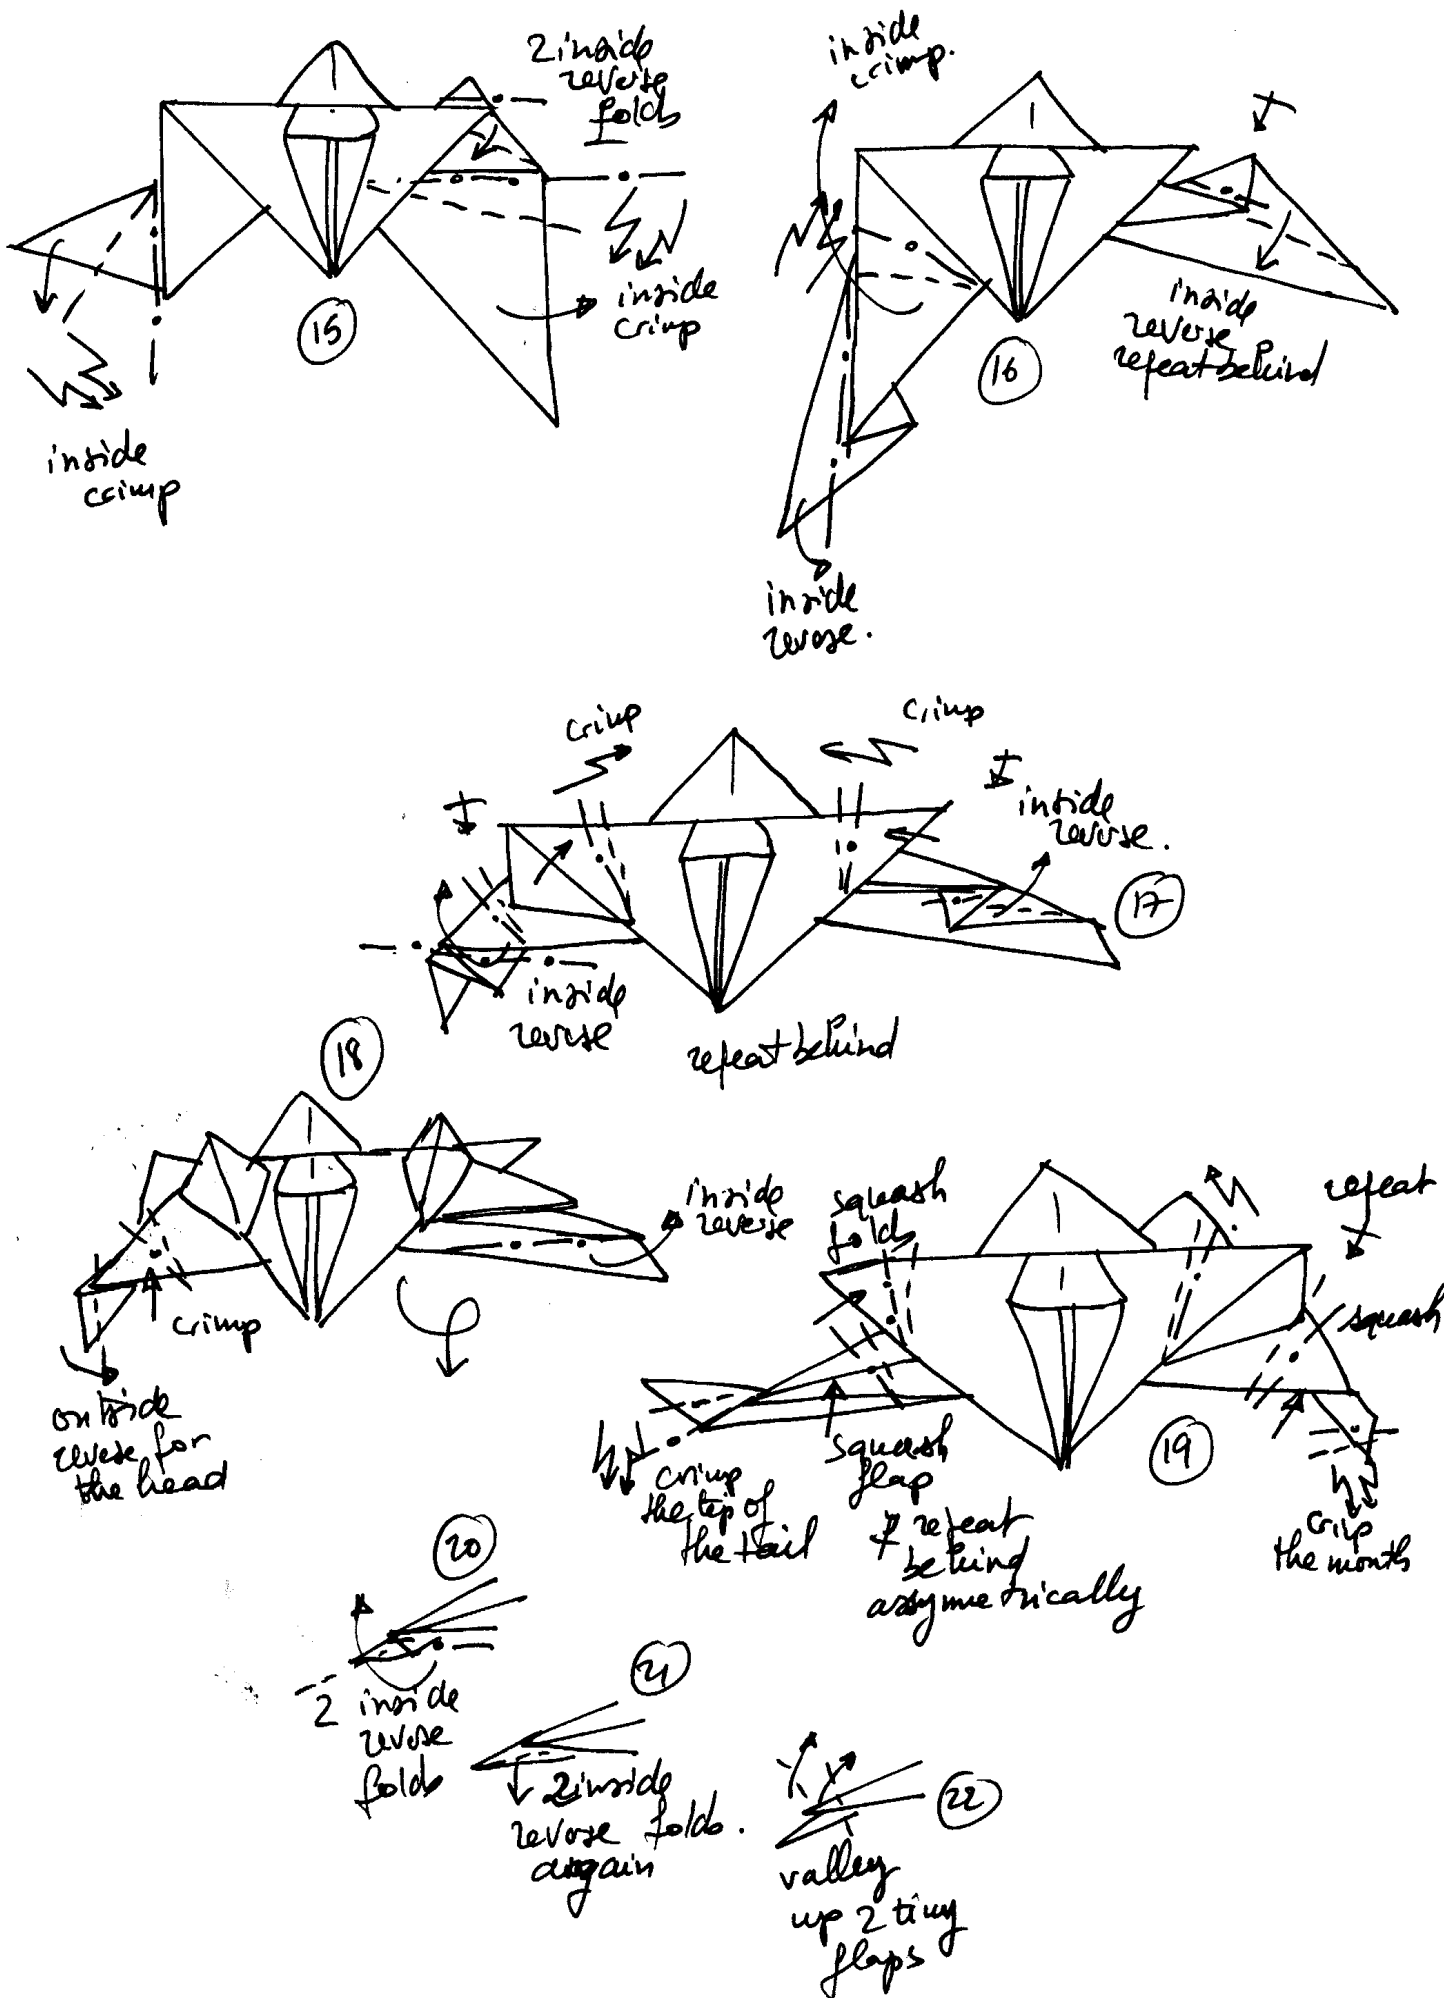 2 inside
reverse
folds
inside
crimp
15
inside
crimp
inside
crimp.
inside
reverse
repeat behind
16
inside
reverse.
crimp
crimp
inside
reverse.
17
inside
reverse
repeat behind
18
inside
reverse
crimp
outside
reverse for
the head
squash
folds
repeat
squash
19
crimp
the tip of
the tail
squash
flap
& repeat
behind
assymetrically
crimp
the mouth
20
2 inside
reverse
folds
21
2 inside
reverse folds.
again
22
valley
up 2 tiny
flaps